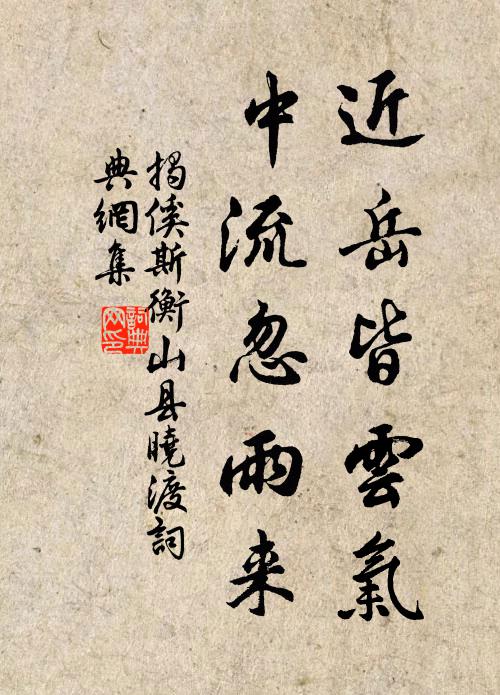 近岳皆雲氣
中流忽雨来
揭傒斯衡山县曉渡詞
典網集
詞典网印